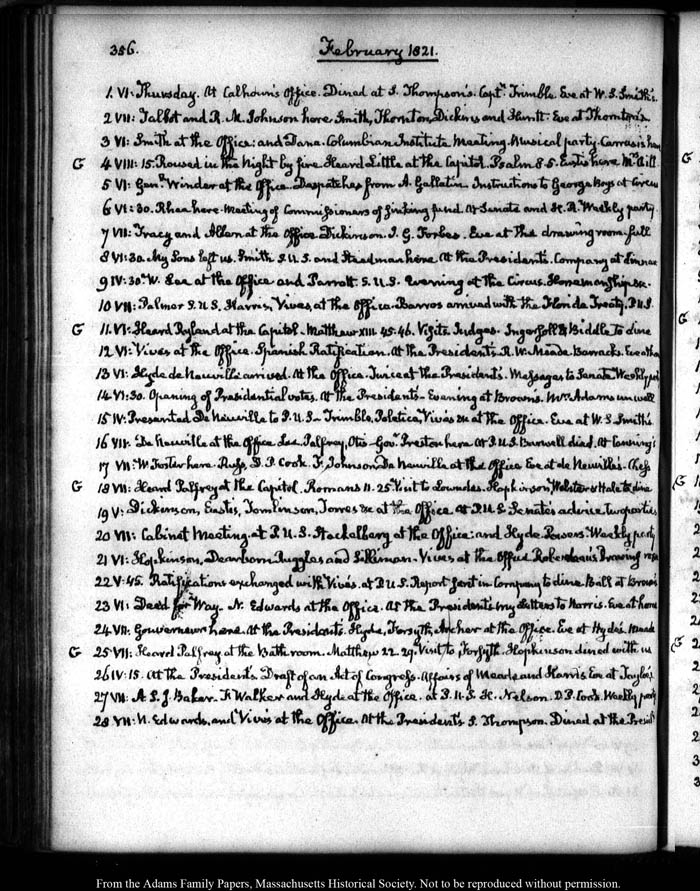 356. February 1821.
1. VI: Thursday. At Calhoun's Office. Dined at S. Thompson's. Captn. Trimble. Eve at W. S. Smith's.
2 VII: Talbot and R. M. Johnson here Smith, Thornton, Dickins and Eve at Thornton's
3 VI: Smith at the Office: and Dana. Columbian Institute Meeting. Musical party.
G 4 VIII: 15. Roused in the Night by fire. Heard Little at the Capitol. Psalm 8.5. Eustis here
5 VI: Genl. Winder at the Office. Despatches from A. Gallatin. Instructions to George Boys at Circus
6 VI: 30. Rhea here. Meeting of Commissioners of Sinking fund. At Senate and H. R. Weekly party.
7 VII: Tracy and Allen at the Office Dickinson. J. G. Forbes. Eve at the drawing room. full
8 VI: 30. My Sons left us. Smith S.U.S. and Steadman here. At the Presidents. Company at Dinner
9 IV: 30. W. Eve at the Office and Parrott S.U.S. Evening at the Circus. Horsemanship &c.
10 VII: Palmer S.U.S. Harris, Vives, at the Office. Barros arrived with the Florida Treaty. P.U.S.
G 11. VI: Heard Ryland at the Capitol. Matthew XIII. 45.46. Visits Judges. Ingersoll & Biddle to dine
12 VI: Vives at the Office. Spanish Ratification. At the President's R. W. Meade. Barracks. Eve
13 VI: Hyde de Neuville arrived. At the Office. Twice at the President's. Messages to Senate Weekly
14 VI: 30. Opening of Presidential votes. At the President's. Evening at Browns. Mrs. Adams unwell
15 IV: Presented De Neuville to P.U.S. Trimble, Poletica, Vivas &c at the Office. Eve at W. S. Smith's
16 VII: De Neuville at the Office Palfrey, Otis. Govr. Preston here At P.U.S. Burwell died. At
17 VII: W Foster here. D. P. Cook. F. Johnson De Neuville at the Office Eve at de Neuville's. Chess
G 18 VII: Heard Palfrey at the Capitol. Romans 11. 25. Visit to Lowndes. Hopkinson, Webster & Hale to dine
19 V: Dickinson, Eustis, Tomlinson, Torres &c at the Office. At P.U.S. Senate's advice Two parties
20 VII: Cabinet Meeting at P.U.S. Stackelberg at the Office: and Hyde. Powers. Weekly party
21 VI: Hopkinson, Dearborn Ruggles and Silliman. Vives at the Office Roberdeau's Drawing
22 V: 45. Ratifications exchanged with Vivés. at P.U.S. Report sent in Company to dine Ball at Brown's
23 VI: Dead for Way. N. Edwards at the Office. At the Presidents my Letters to Harris. Eve at home
24 VII: Gouverneur here. At the Presidents. Hyde, Forsyth, Archer at the Office. Eve at Hyde's. Meade
G 25 VII: Heard Palfrey at the Bath room. Matthew 22. 29. Visit to Forsyth. Hopkinson dined with us
26 IV: 15. At the President's. Draft of an Act of Congress. Affairs of Meade and Harris Eve at Tayloe's
27 VII: A. S. J. Baker. F. Walker and Hyde at the Office. at P.U.S. H. Nelson. D. P. Cook. Weekly party
28 VII: N. Edwards, and Vives at the Office. At the President's S. Thompson. Dined at the
From the Adams Family Papers, Massachusetts Historical Society. Not to be reproduced without permission.